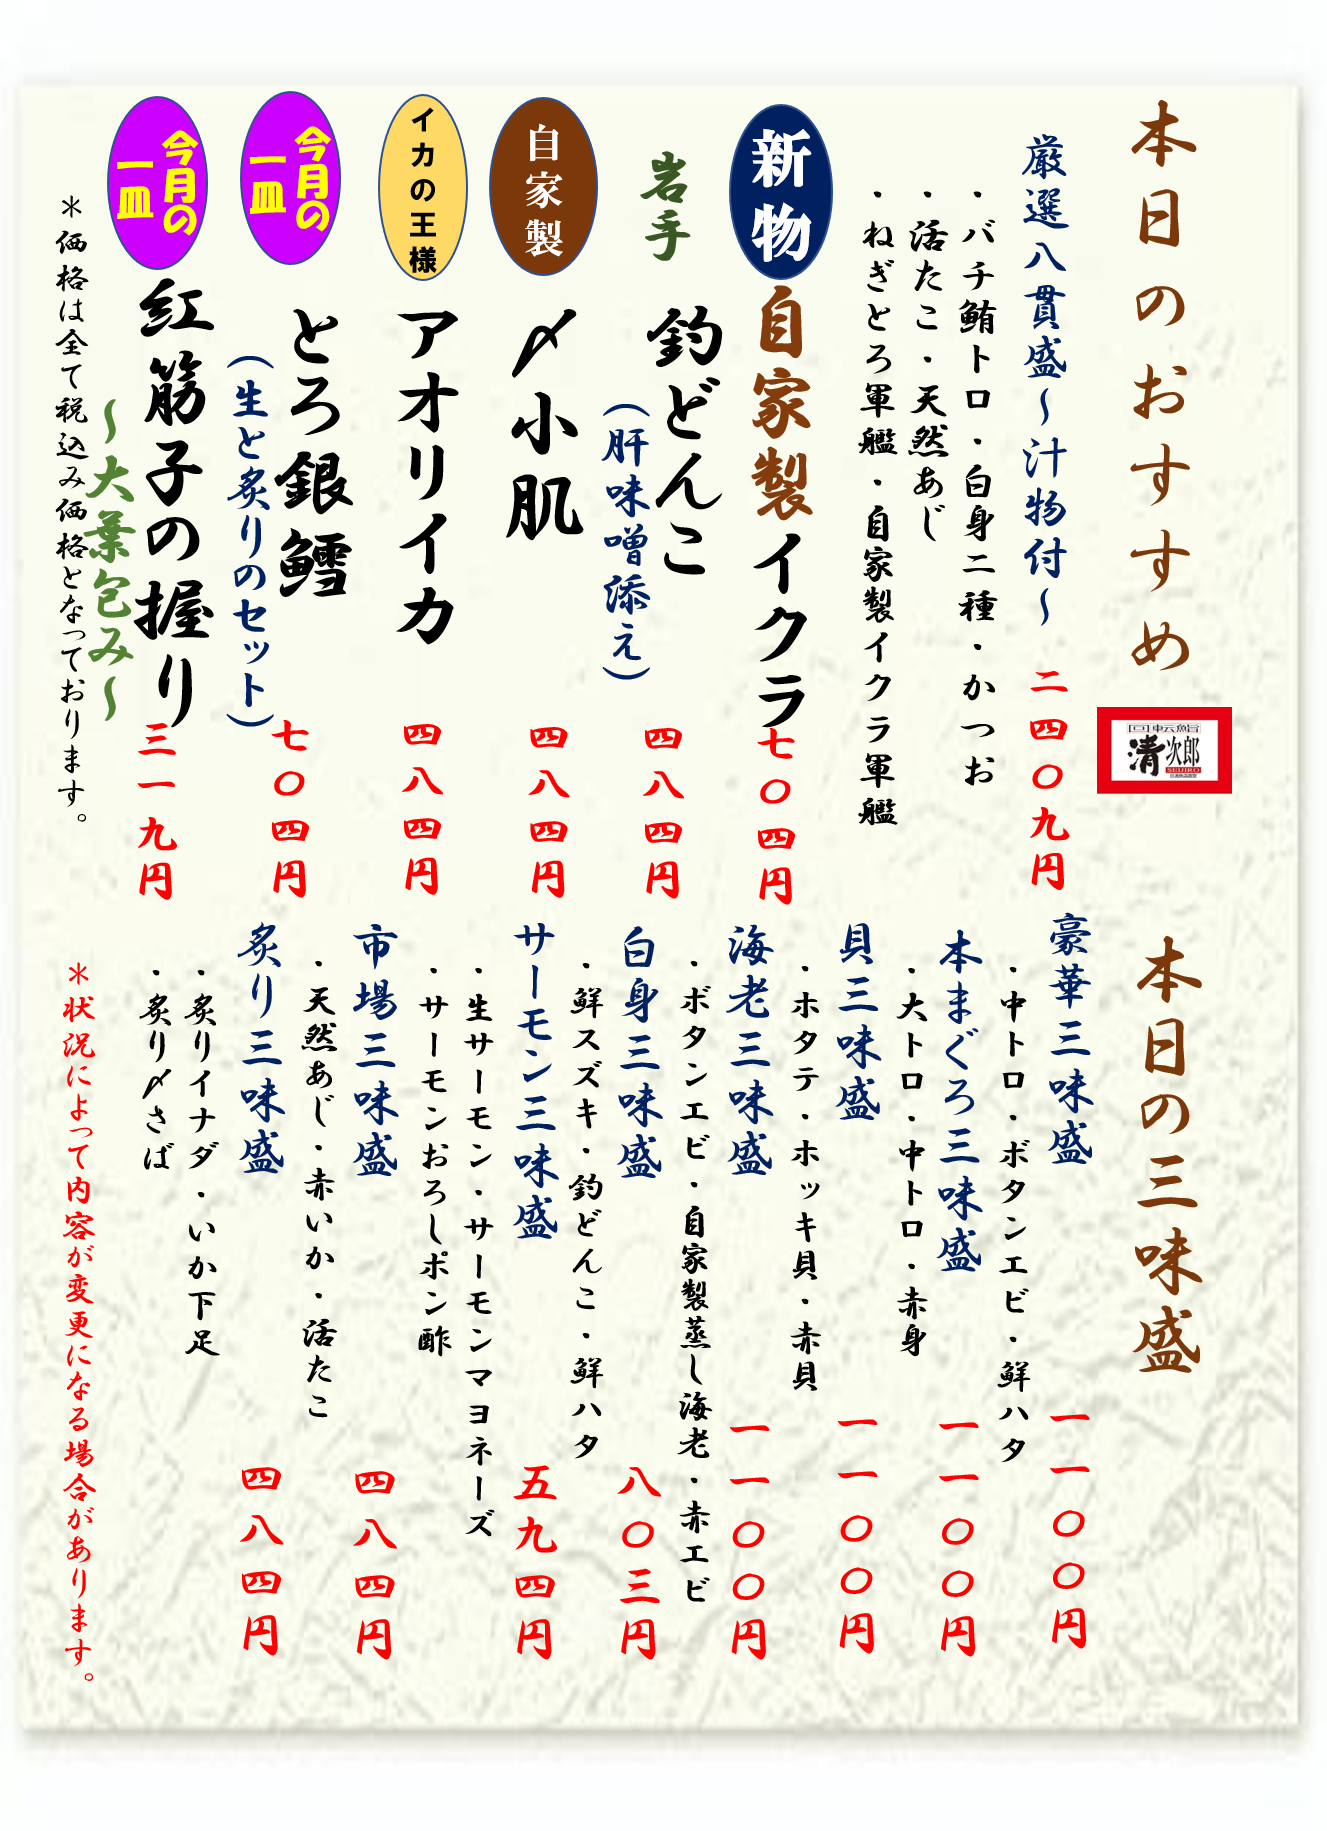 本日のおすすめ
回転鮨
清次郎
SEIJIRO
厳選八貫盛～汁物付～ 二四〇九円
・バチ鮪トロ・白身二種・かつお
・活たこ・天然あじ
・ねぎとろ軍艦・自家製イクラ軍艦
新物
自家製イクラ 七〇四円
岩手
釣どんこ 四八四円
（肝味噌添え）
自家製
〆小肌 四八四円
イカの王様
アオリイカ 四八四円
今月の
一皿
とろ銀鱈 七〇四円
（生と炙りのセット）
今月の
一皿
紅筋子の握り 三一九円
～大葉包み～
＊価格は全て税込み価格となっております。
本日の三味盛
豪華三味盛 一一〇〇円
・中トロ・ボタンエビ・鮮ハタ
本まぐろ三味盛 一一〇〇円
・大トロ・中トロ・赤身
貝三味盛 一一〇〇円
・ホタテ・ホッキ貝・赤貝
海老三味盛 一一〇〇円
・ボタンエビ・自家製蒸し海老・赤エビ
白身三味盛 八〇三円
・鮮スズキ・釣どんこ・鮮ハタ
サーモン三味盛 五九四円
・生サーモン・サーモンマヨネーズ
・サーモンおろしポン酢
市場三味盛 四八四円
・天然あじ・赤いか・活たこ
炙り三味盛 四八四円
・炙りイナダ・いか下足
・炙り〆さば
＊状況によって内容が変更になる場合があります。